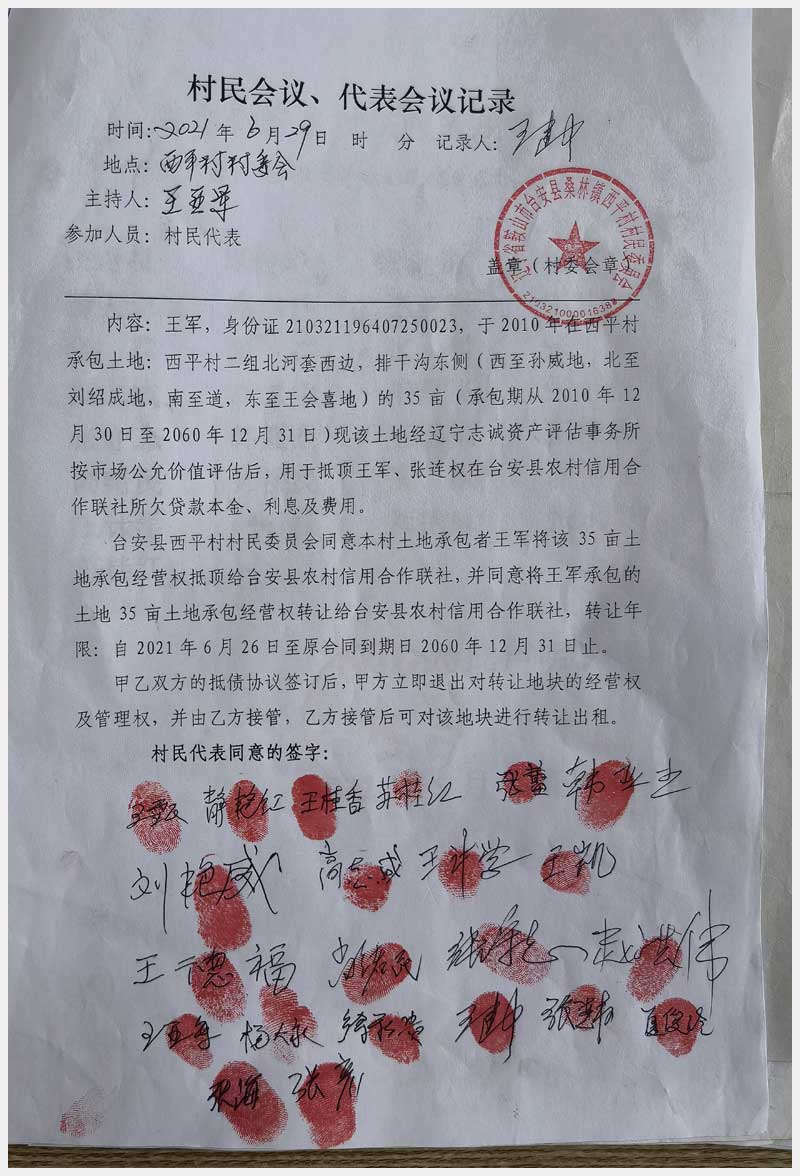 村民会议、代表会议记录
时间：2021年6月29日 时 分 记录人：王建中
地点：西平村村委会
主持人：王亚军
参加人员：村民代表
辽宁省鞍山市台安县桑林镇西平村村民委员会
210321000616388
盖章（村委会章）
内容：王军，身份证210321196407250023，于2010年在西平村
承包土地：西平村二组北河套西边，排干沟东侧（西至孙威地，北至
刘绍成地，南至道，东至王会喜地）的35亩（承包期从2010年12
月30日至2060年12月31日）现该土地经辽宁志诚资产评估事务所
按市场公允价值评估后，用于抵顶王军、张连权在台安县农村信用合
作联社所欠贷款本金、利息及费用。
台安县西平村村民委员会同意本村土地承包者王军将该35亩土
地承包经营权抵顶给台安县农村信用合作联社，并同意将王军承包的
土地35亩土地承包经营权转让给台安县农村信用合作联社，转让年
限：自2021年6月26日至原合同到期日2060年12月31日止。
甲乙双方的抵债协议签订后，甲方立即退出对转让地块的经营权
及管理权，并由乙方接管，乙方接管后可对该地块进行转让出租。
村民代表同意的签字：
静艳红 王桂香 苏桂红
刘艳威 高志威 王计学 王凯
王德福
王亚军 杨人永 王建中
张海 张彪